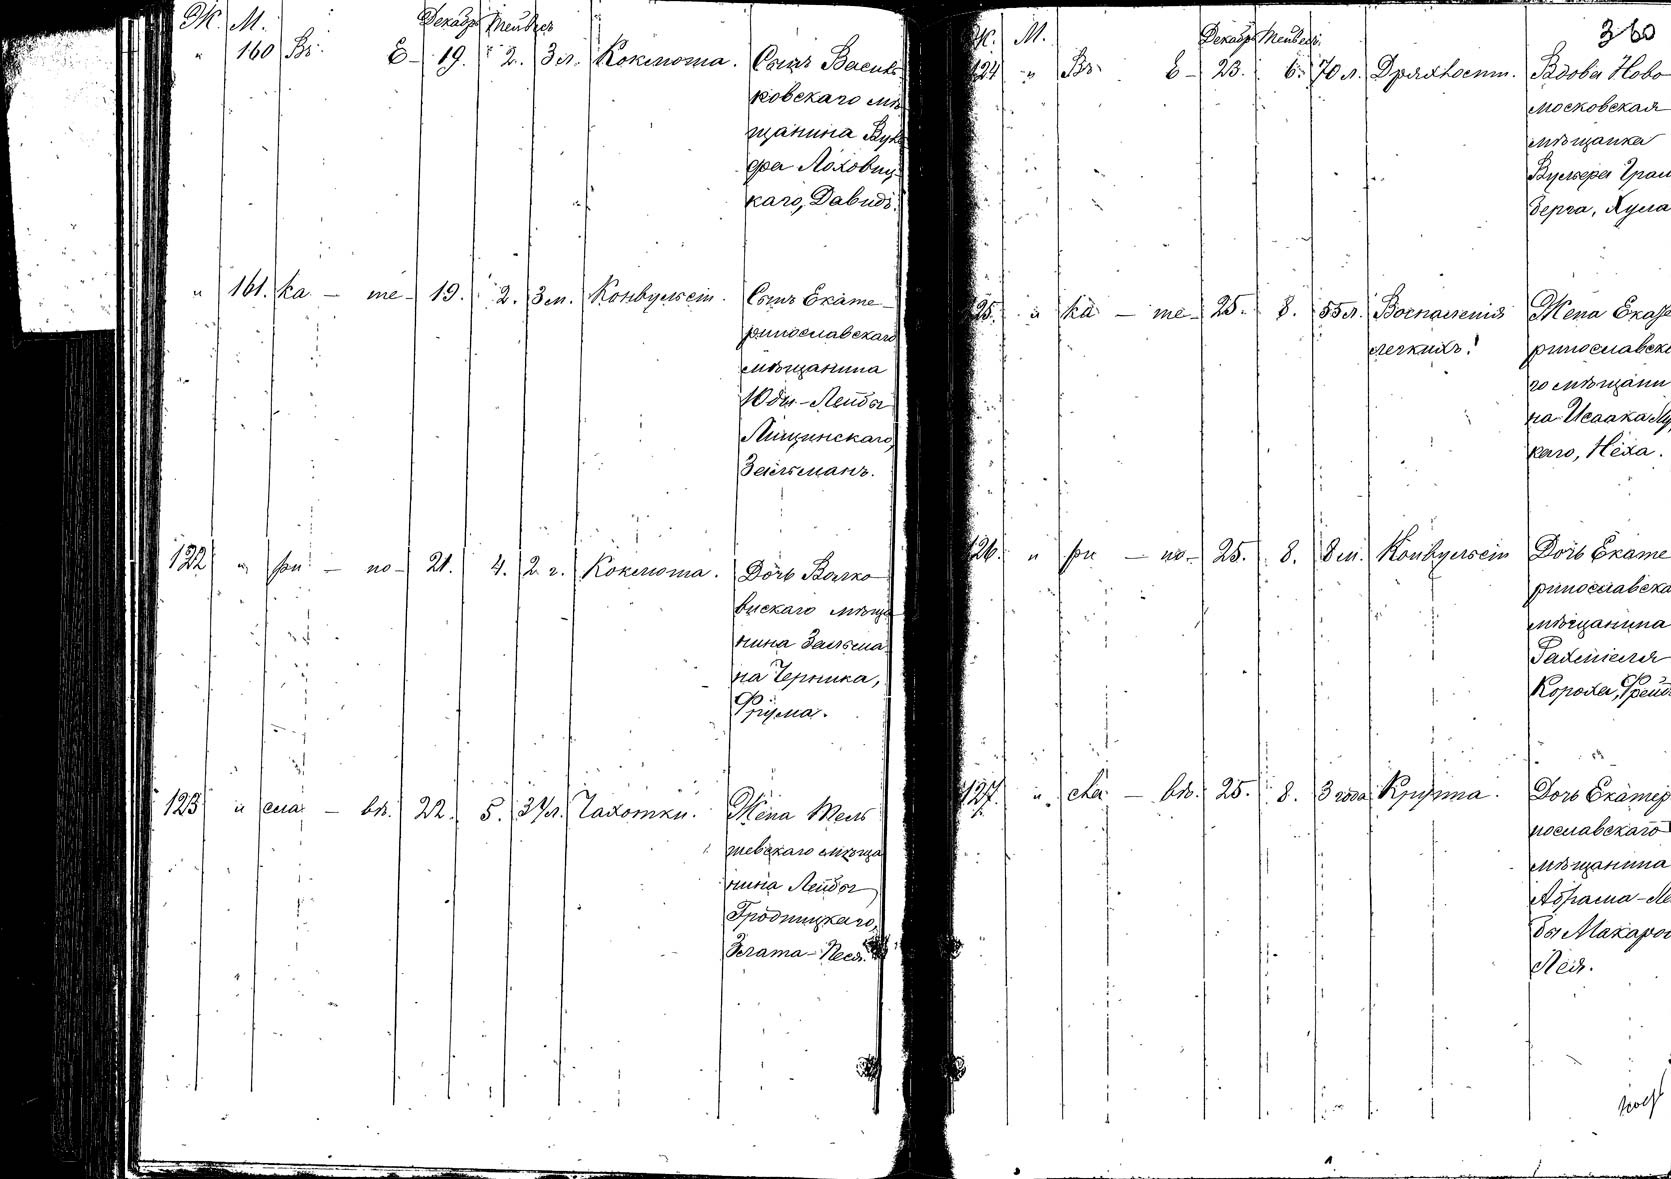 Ж. М. Декабр. Тейвесъ
" 160 Въ Е- 19. 2. 3 л. Коклюша. Сынъ Василь-
ковскаго мѣ-
щанина
фа Лоховиц-
каго, Давидъ.
" 161. ка - те- 19. 2. 3 м. Конвульсіи. Сынъ Екате-
ринославскаго
мѣщанина
Юды-Лейбы
Пищинскаго,
Зальманъ.
122 " ри - но- 21. 4. 2 г. Коклюша. Дочь Волко-
вискаго мѣща-
нина Зальма-
на Черника,
Фрума.
123 " сла - вѣ. 22. 5. 34 л. Чахотки. Жена Тель-
шевскаго мѣща
нина Лейбы
Гродницкаго,
Злата-Песя.
360
Ж. М. Декабр Тейвесъ
124 " Въ Е- 23. 6. 70 л. Дряхлости. Вдова Ново-
московская
мѣщанка
Вульфа
берга, Хула
125. " ка - те- 25. 8. 55 л. Воспаленія Жена Екате
легкихъ. ринославска
го мѣщани
на Исаака
каго, Неха.
126. " ри - но- 25. 8. 8 м. Конвульсіи Дочь Екате
ринославска
мѣщанина
Рахміеля
Короха, Фрейд
127. " сла - вѣ. 25. 8. 3 года Круппа. Дочь Екатер
нославскаго
мѣщанина
Абрама-Ле
бы Макаро
Лея.